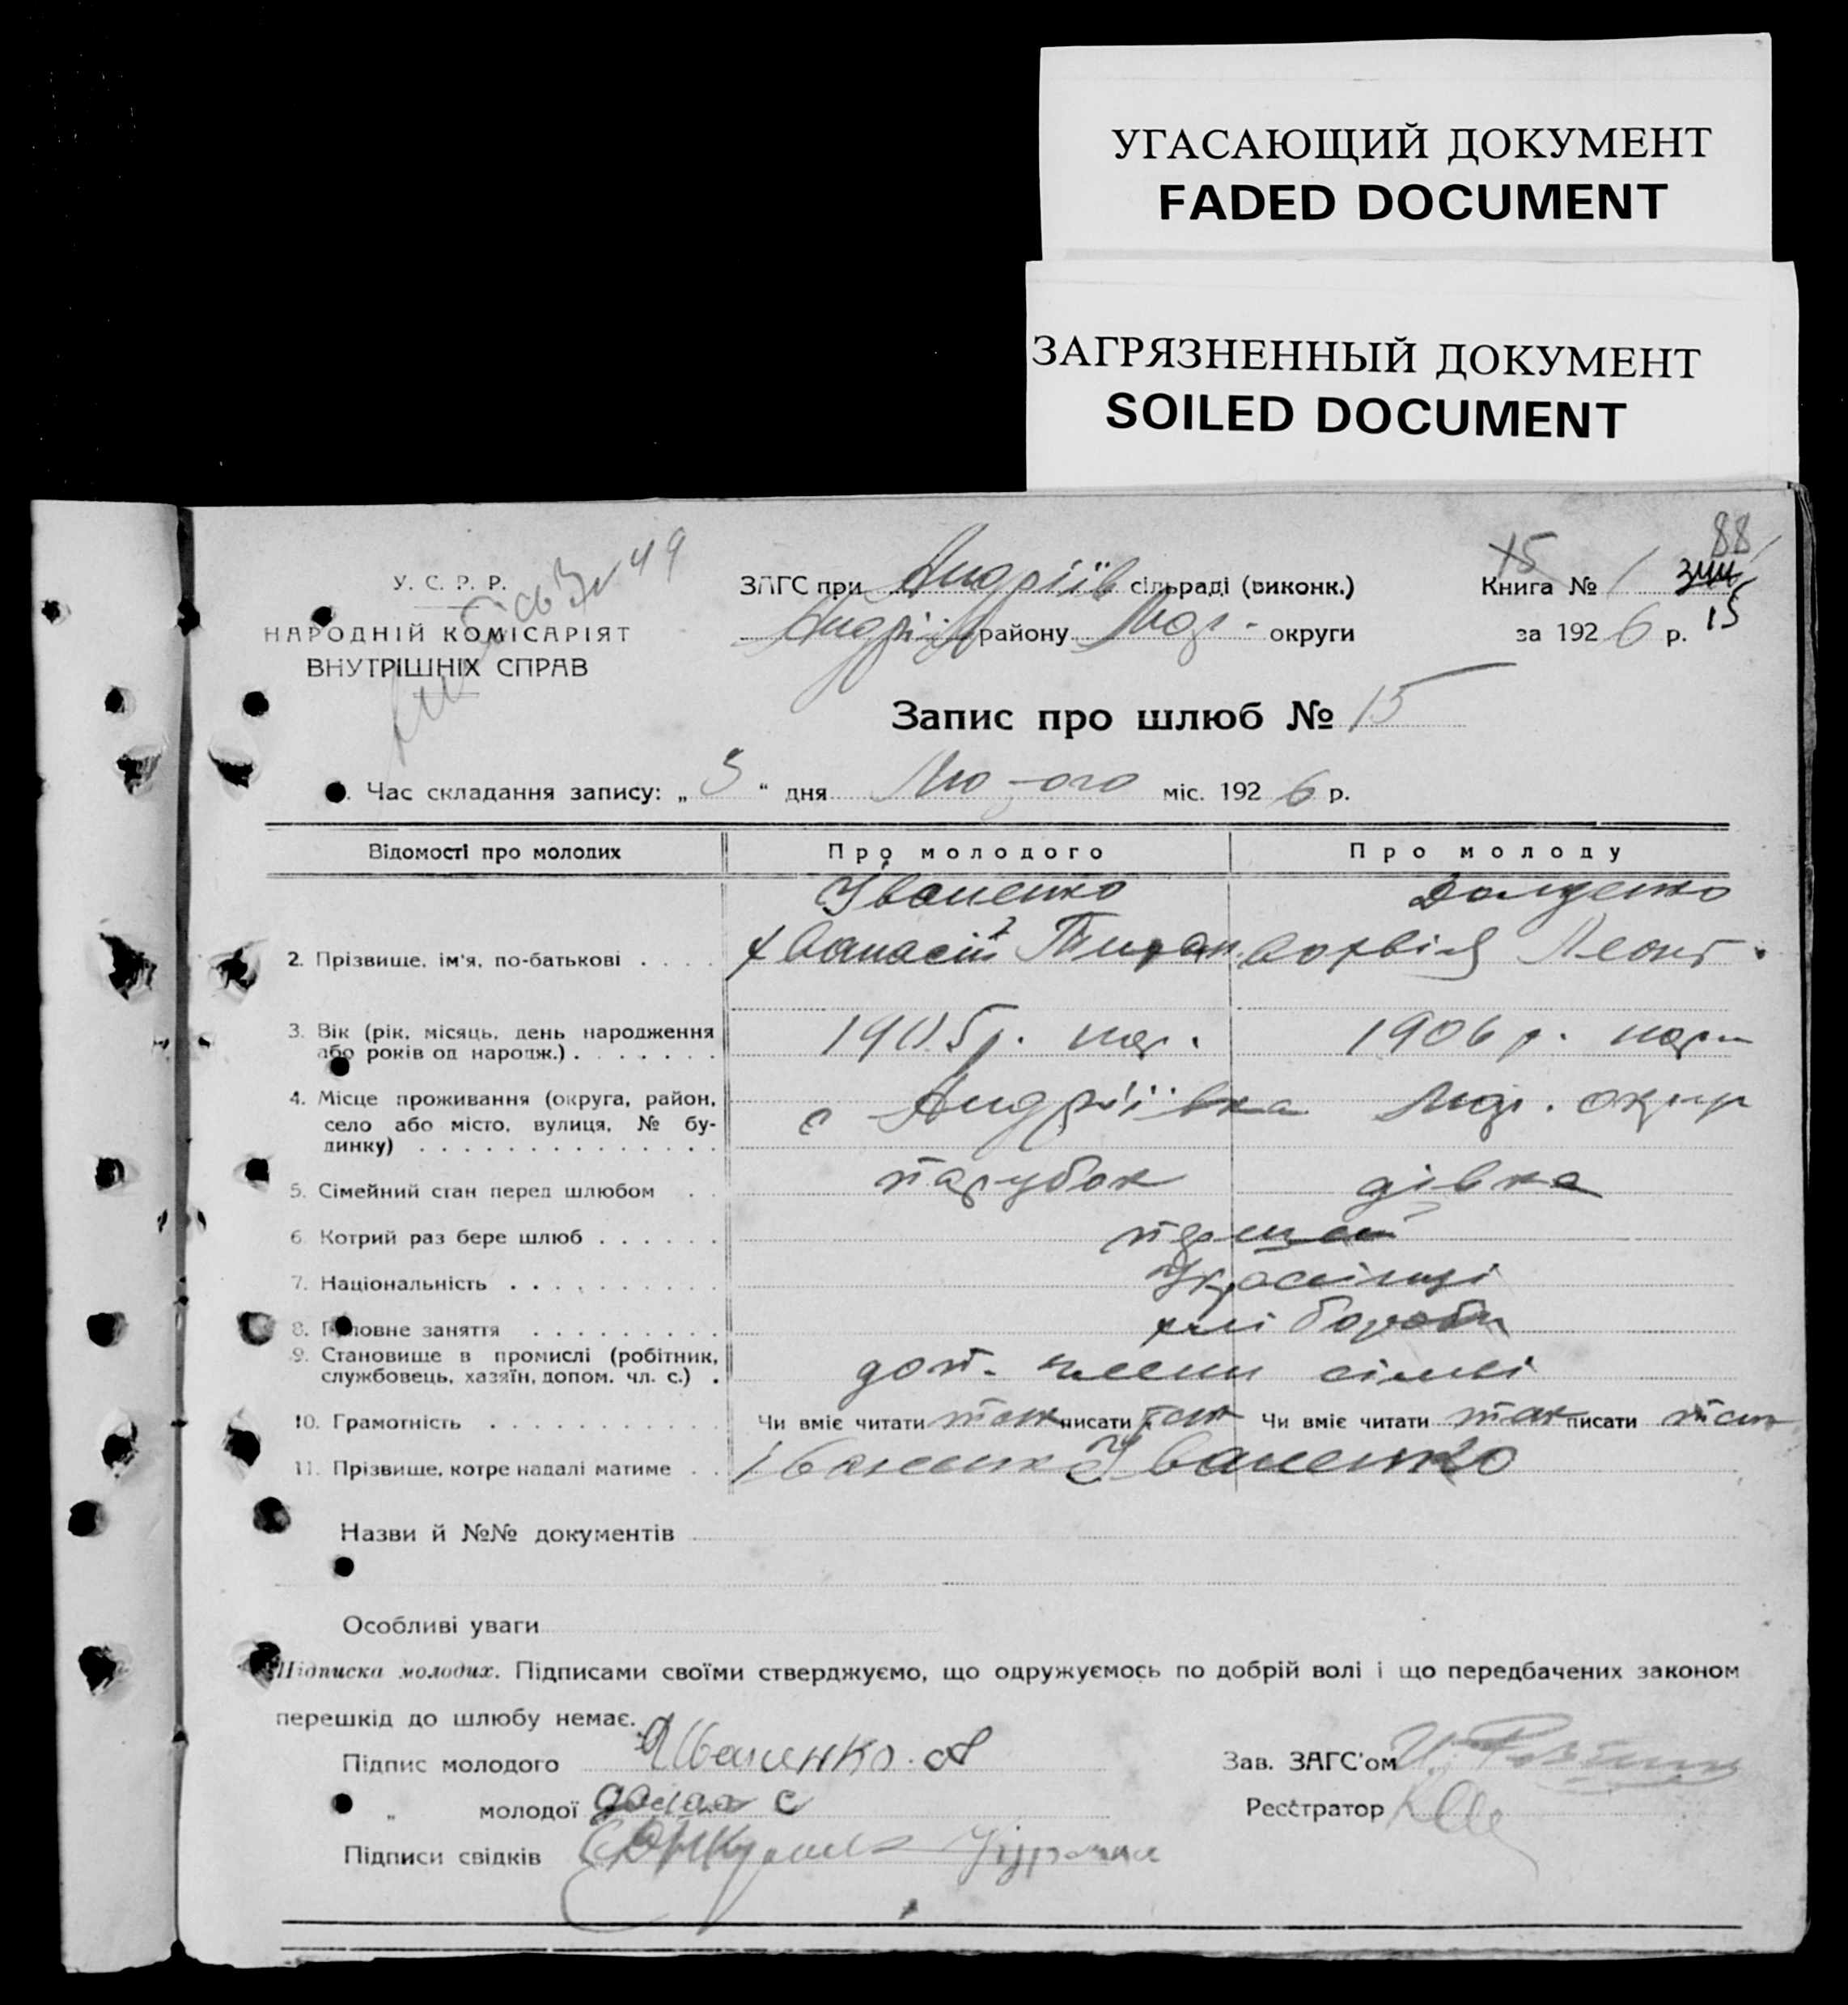 УГАСАЮЩИЙ ДОКУМЕНТ
FADED DOCUMENT
ЗАГРЯЗНЕННЫЙ ДОКУМЕНТ
SOILED DOCUMENT
88
15
У. С. Р. Р.
49
ЗАГС при Андріїв сільраді (виконк.)
Книга № 1
НАРОДНІЙ КОМІСАРІЯТ
Андріїв району округи
за 1926 р. 15
ВНУТРІШНІХ СПРАВ
Запис про шлюб № 15
Час складання запису: „ 3 “ дня Лю-ого міс. 1926 р.
Відомості про молодих Про молодого Про молоду
Іваненко
2. Прізвище, ім'я, по-батькові . . . . Леонт.
3. Вік (рік, місяць, день народження 1905 р. нар. 1906 р. нар
або років од народж.) . . . . . . .
4. Місце проживання (округа, район, с Андріївка округ
село або місто, вулиця, № бу-
динку) . . . . . . . . . . . . . .
5. Сімейний стан перед шлюбом . . парубок дівка
6. Котрий раз бере шлюб . . . . . . перший
7. Національність . . . . . . . . . . Українці
8. Головне заняття . . . . . . . . . хлібороби
9. Становище в промислі (робітник, доп. члени сімьї
службовець, хазяїн, допом. чл. с.) .
10. Грамотність . . . . . . . . . . . Чи вміє читати так писати так Чи вміє читати так писати так
11. Прізвище, котре надалі матиме . . Іваненко Іваненко
Назви й №№ документів
Особливі уваги
Підписка молодих. Підписами своїми стверджуємо, що одружуємось по добрій волі і що передбачених законом
перешкід до шлюбу немає.
Підпис молодого Иваненко А
Зав. ЗАГС'ом
„ молодої
Реєстратор
Підписи свідків